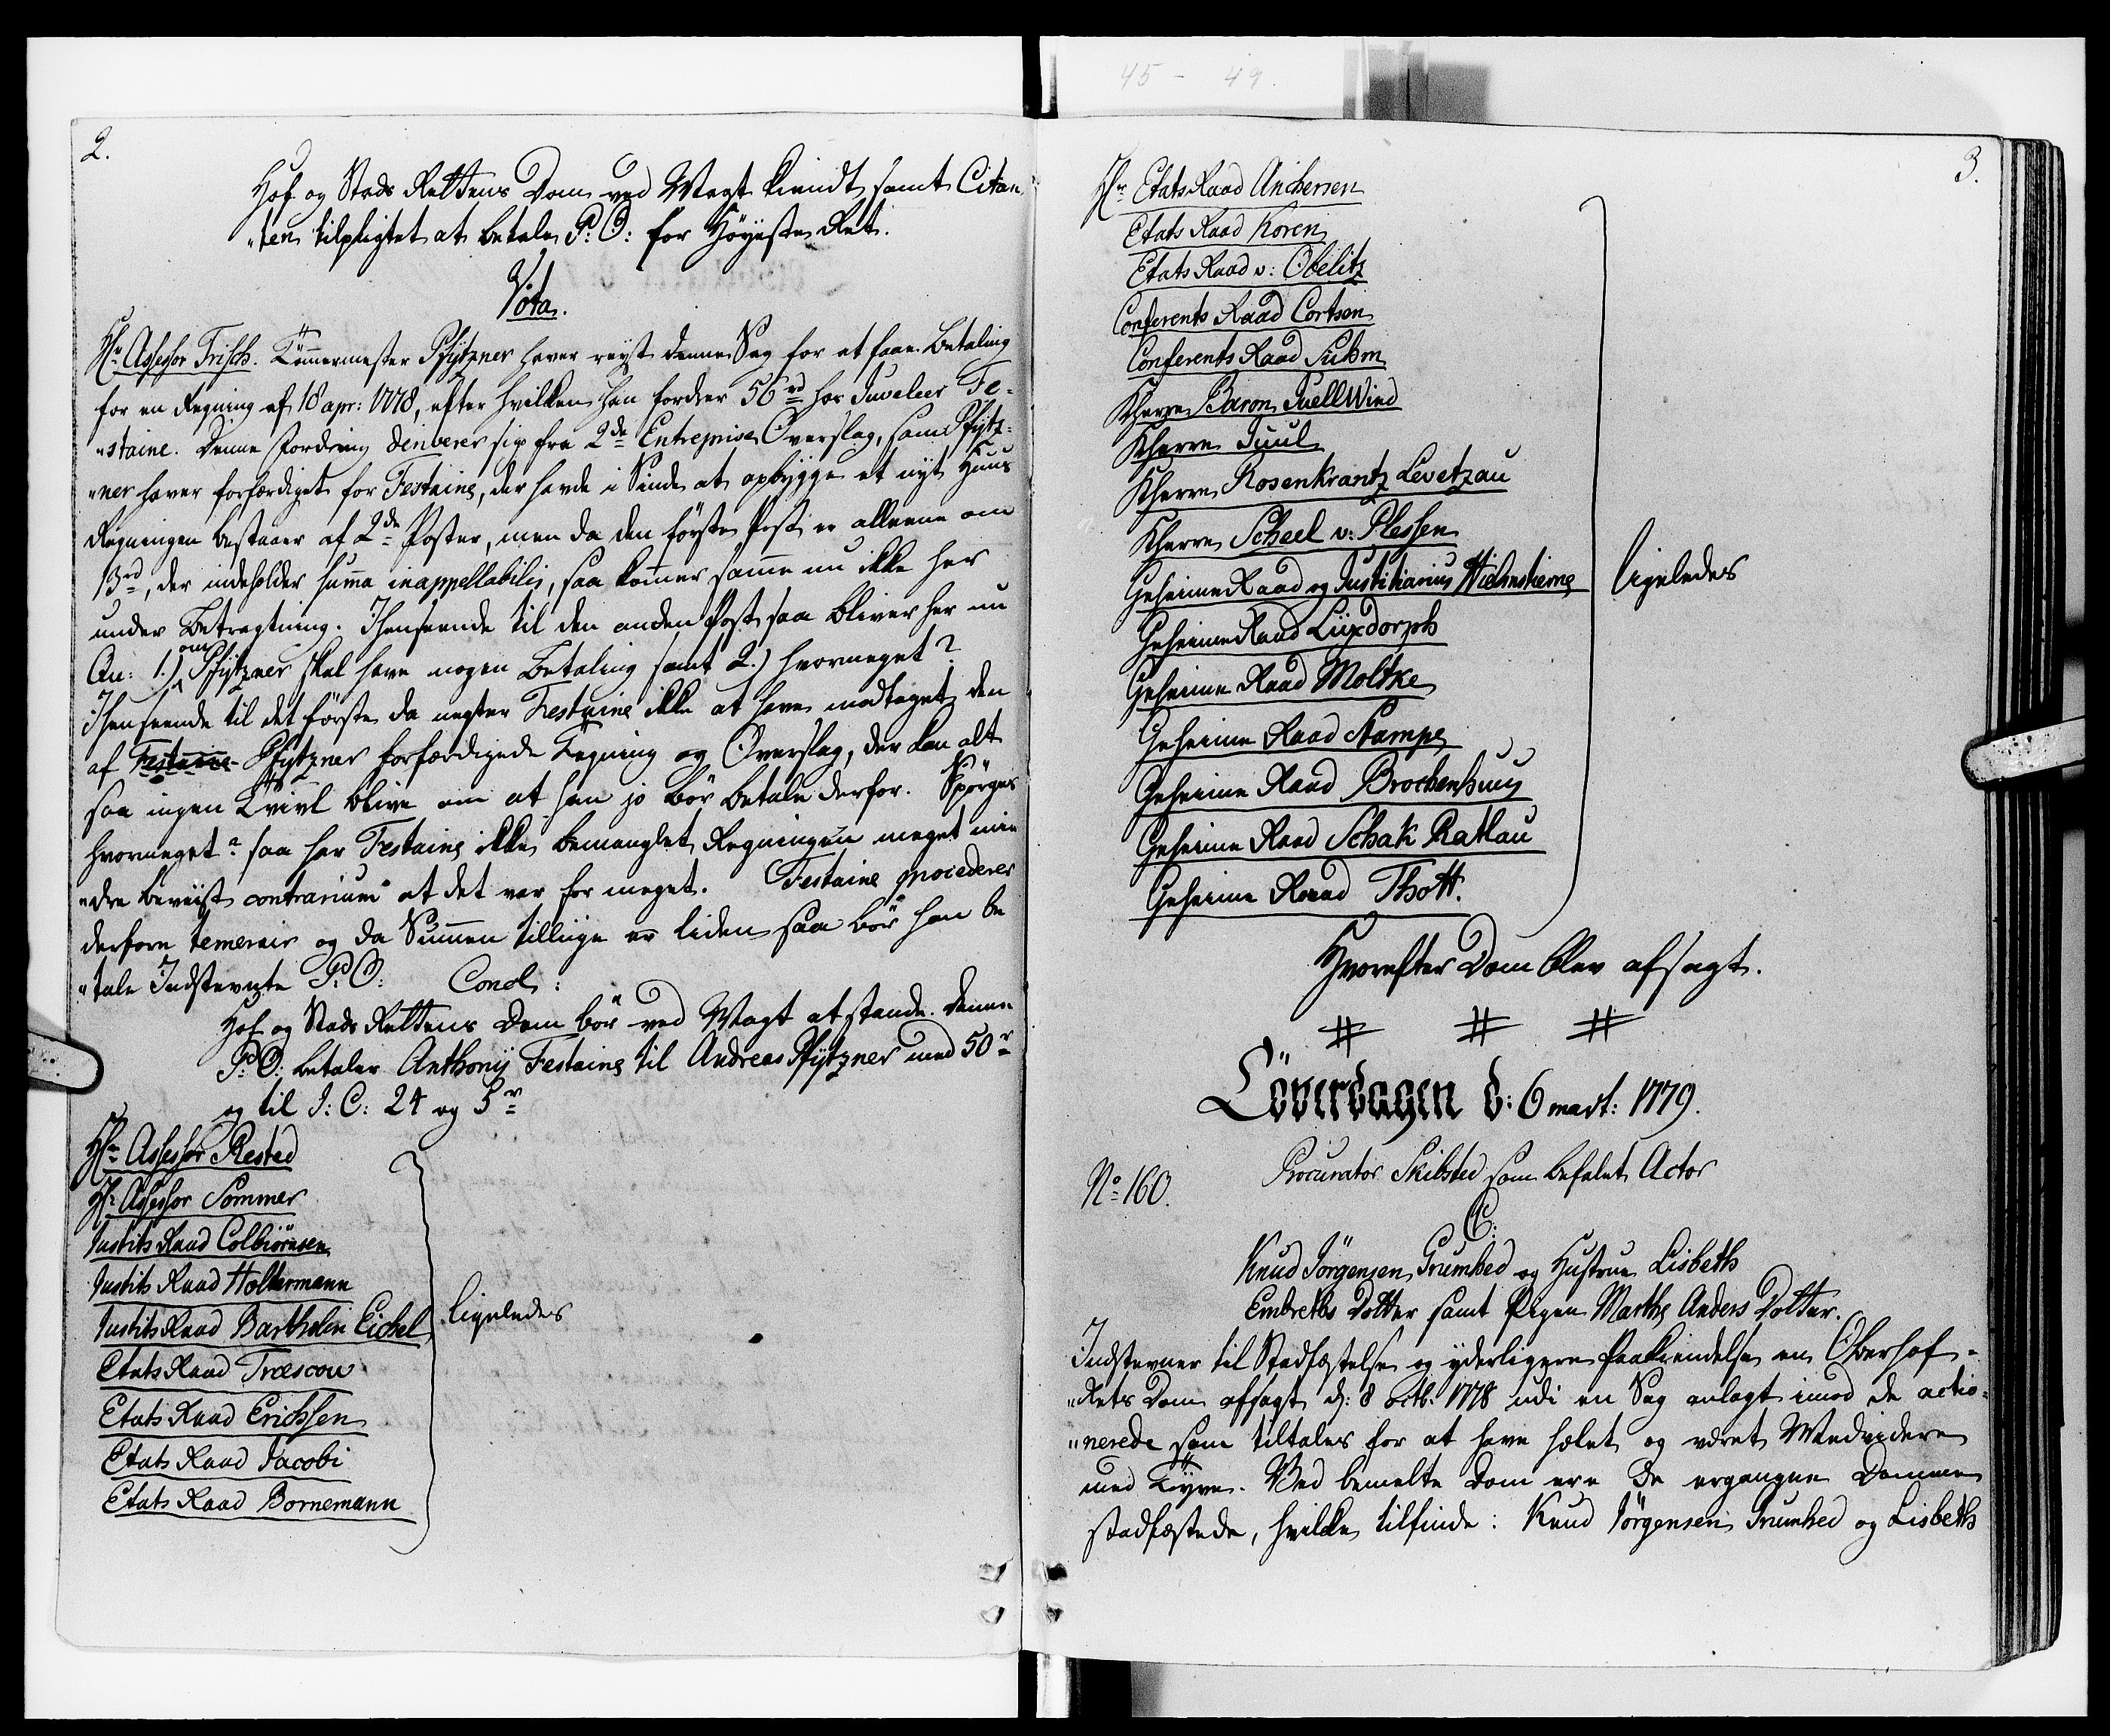 45 - 49.
2.
Hof og Stads Rettens Dom ved Magt kiendt samt Citan
"ten tilpligtet at betale P: O: for Höyeste Ret.
Vota.
Hr. Assessor Frisch. Tömmermester Pfÿtzner haver reyst denne Sag for at faae Betaling
for en Regning af 18 apr: 1778, efter hvilken han fordrer 56 rd hos Juveleer Fe-
"staine. Denne fordring deriverer sig fra 2de Entreprise Overslag, som Pfÿtz-
"ner haver forfærdiget for Festaine, der havde i Sinde at opbygge et nyt Huus
Regningen bestaaer af 2de Poster, men da den förste Post er alleene om
13 rd, der indeholder summa inappellabilis, saa kommer samme nu ikke her
under Betragtning. Henseende til den anden Post saa bliver her nu
Qu: 1.) om Pfÿtzner skal have nogen Betaling samt 2.) hvormeget?
Henseende til det förste da negter Festaine ikke at have modtaget den
af Festaine Pfÿtzner forfærdigede Tegning og Overslag, der kan alt
saa ingen Tvivl blive om at han jo bör betale derfor. Spörges
hvormeget? saa har Festaine ikke bemanglet Regningen meget min
"dre beviist contrarium at det var for meget. Festaine procederer
derfore temerair og da Summen tillige er liden saa bör han be
"tale Indstevnte P: O: Concl:
Hof og Stads Rettens Dom bör ved Magt at stande. Denne
P: O: betaler Anthonij Festaine til Andreas Pfÿtzner med 50 r
og til J: C: 24 og 5 r
Hr. Assessor Rested
Hr. Assessor Sommer
Justits Raad Colbiörnsen
Justits Raad Holtermann
Justits Raad Bartholin Eichel
ligeledes
Etats Raad Træscow
Etats Raad Erichsen
Etats Raad Jacobi
Etats Raad Bornemann
3.
Hr. Etats Raad Anchersen
Etats Raad Koren
Etats Raad v: Obelitz
Conferents Raad Cortsen
Conferents Raad Suhm
Kherre Baron Juell Wind
Kherre Juul
Kherre Rosenkrantz Levetzau
Kherre Scheel v: Plessen
Geheime Raad og Justitiarius Hielmstierne
ligeledes
Geheime Raad Luxdorph
Geheime Raad Moltke
Geheime Raad Stampe
Geheime Raad Brochenhuus
Geheime Raad Schak Ratlau
Geheime Raad Thott.
Hvorefter Dom blev afsagt.
Löverdagen d: 6 mart: 1779.
No. 160.
Procurator Skibsted som befalet Actor
C:
Knud Jörgensen Grumhed og Hustrue Lisbeth
Embreths Dotter samt Pigen Marthe Anders Dotter.
Indstevner til Stadfæstelse og yderligere Paakiendelse en Oberhof-
"Rets Dom afsagt d: 8 octb: 1778 udi en Sag anlagt imod de actio-
"nerede som tiltales for at have hælet og været Medvidere
med Tyve. Ved bemelte Dom ere de ergangne Domme
stadfæstede, hvilke tilfinde: Knud Jörgensen Grumhed og Lisbeth